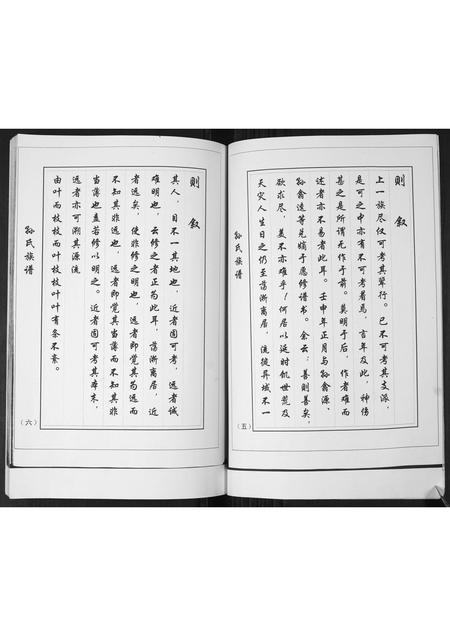 则叙
上一族尽仅可考其辈行。已不可考其支派，
是可之中亦有不可考着焉，言年及此，神伤
甚之是所谓无作于前。莫明于后，作者难而
述者亦不易者此耳。壬申年正月与孙禽源、
孙禽远等兑嫡于愿修谱书。余云：善则善矣，
欲求尽，美不亦难乎！何居以延时饥世荒及
天灾人生日之仍至荡渐离居，流徙异域不一
孙氏族谱
（五）
则叙
其人，目不一其地也，近者固可考，远者诚
难明也，去修之者正为此耳，荡渐离居，近
者远矣，使非修之明也，远者即觉其为远而
不知其非远也，远者即觉其当薄而不知其非
当薄也盖若修以明之。近者固可考其本末，
远者亦可溯其源流
由叶而枝枝而叶枝枝叶叶有条不紊。
孙氏族谱
（六）